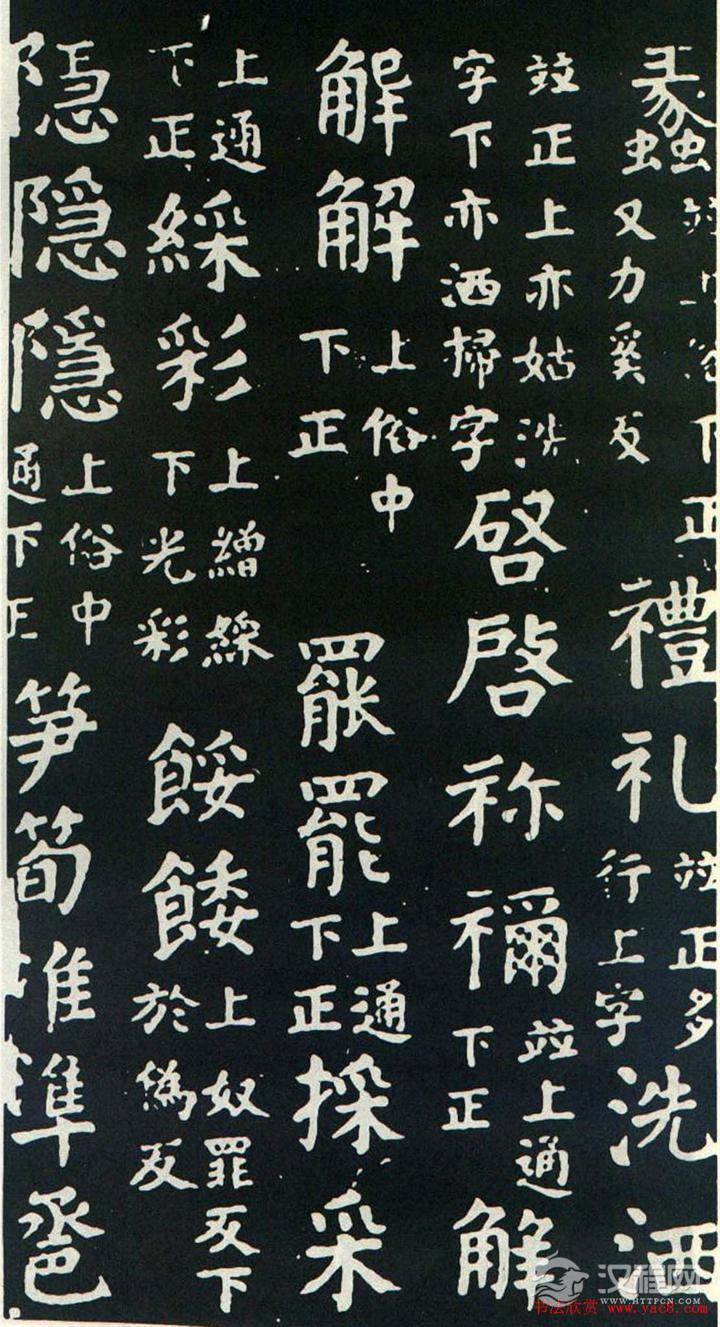 蠡竝上俗下正又力奚反禮礼竝正多行上字洗洒
竝正上亦姑洗字下亦洒掃字啓啓祢禰竝上通下正解
解解上俗中下正罷罷上通下正採采
上通下正綵彩上繒綵下光彩餒餧上奴罪反下於偽反
隐隠隱上俗中通下正笋筍准準卺
汉程网
WWW.HTTPCN.COM
书法欣赏 www.yac8.com